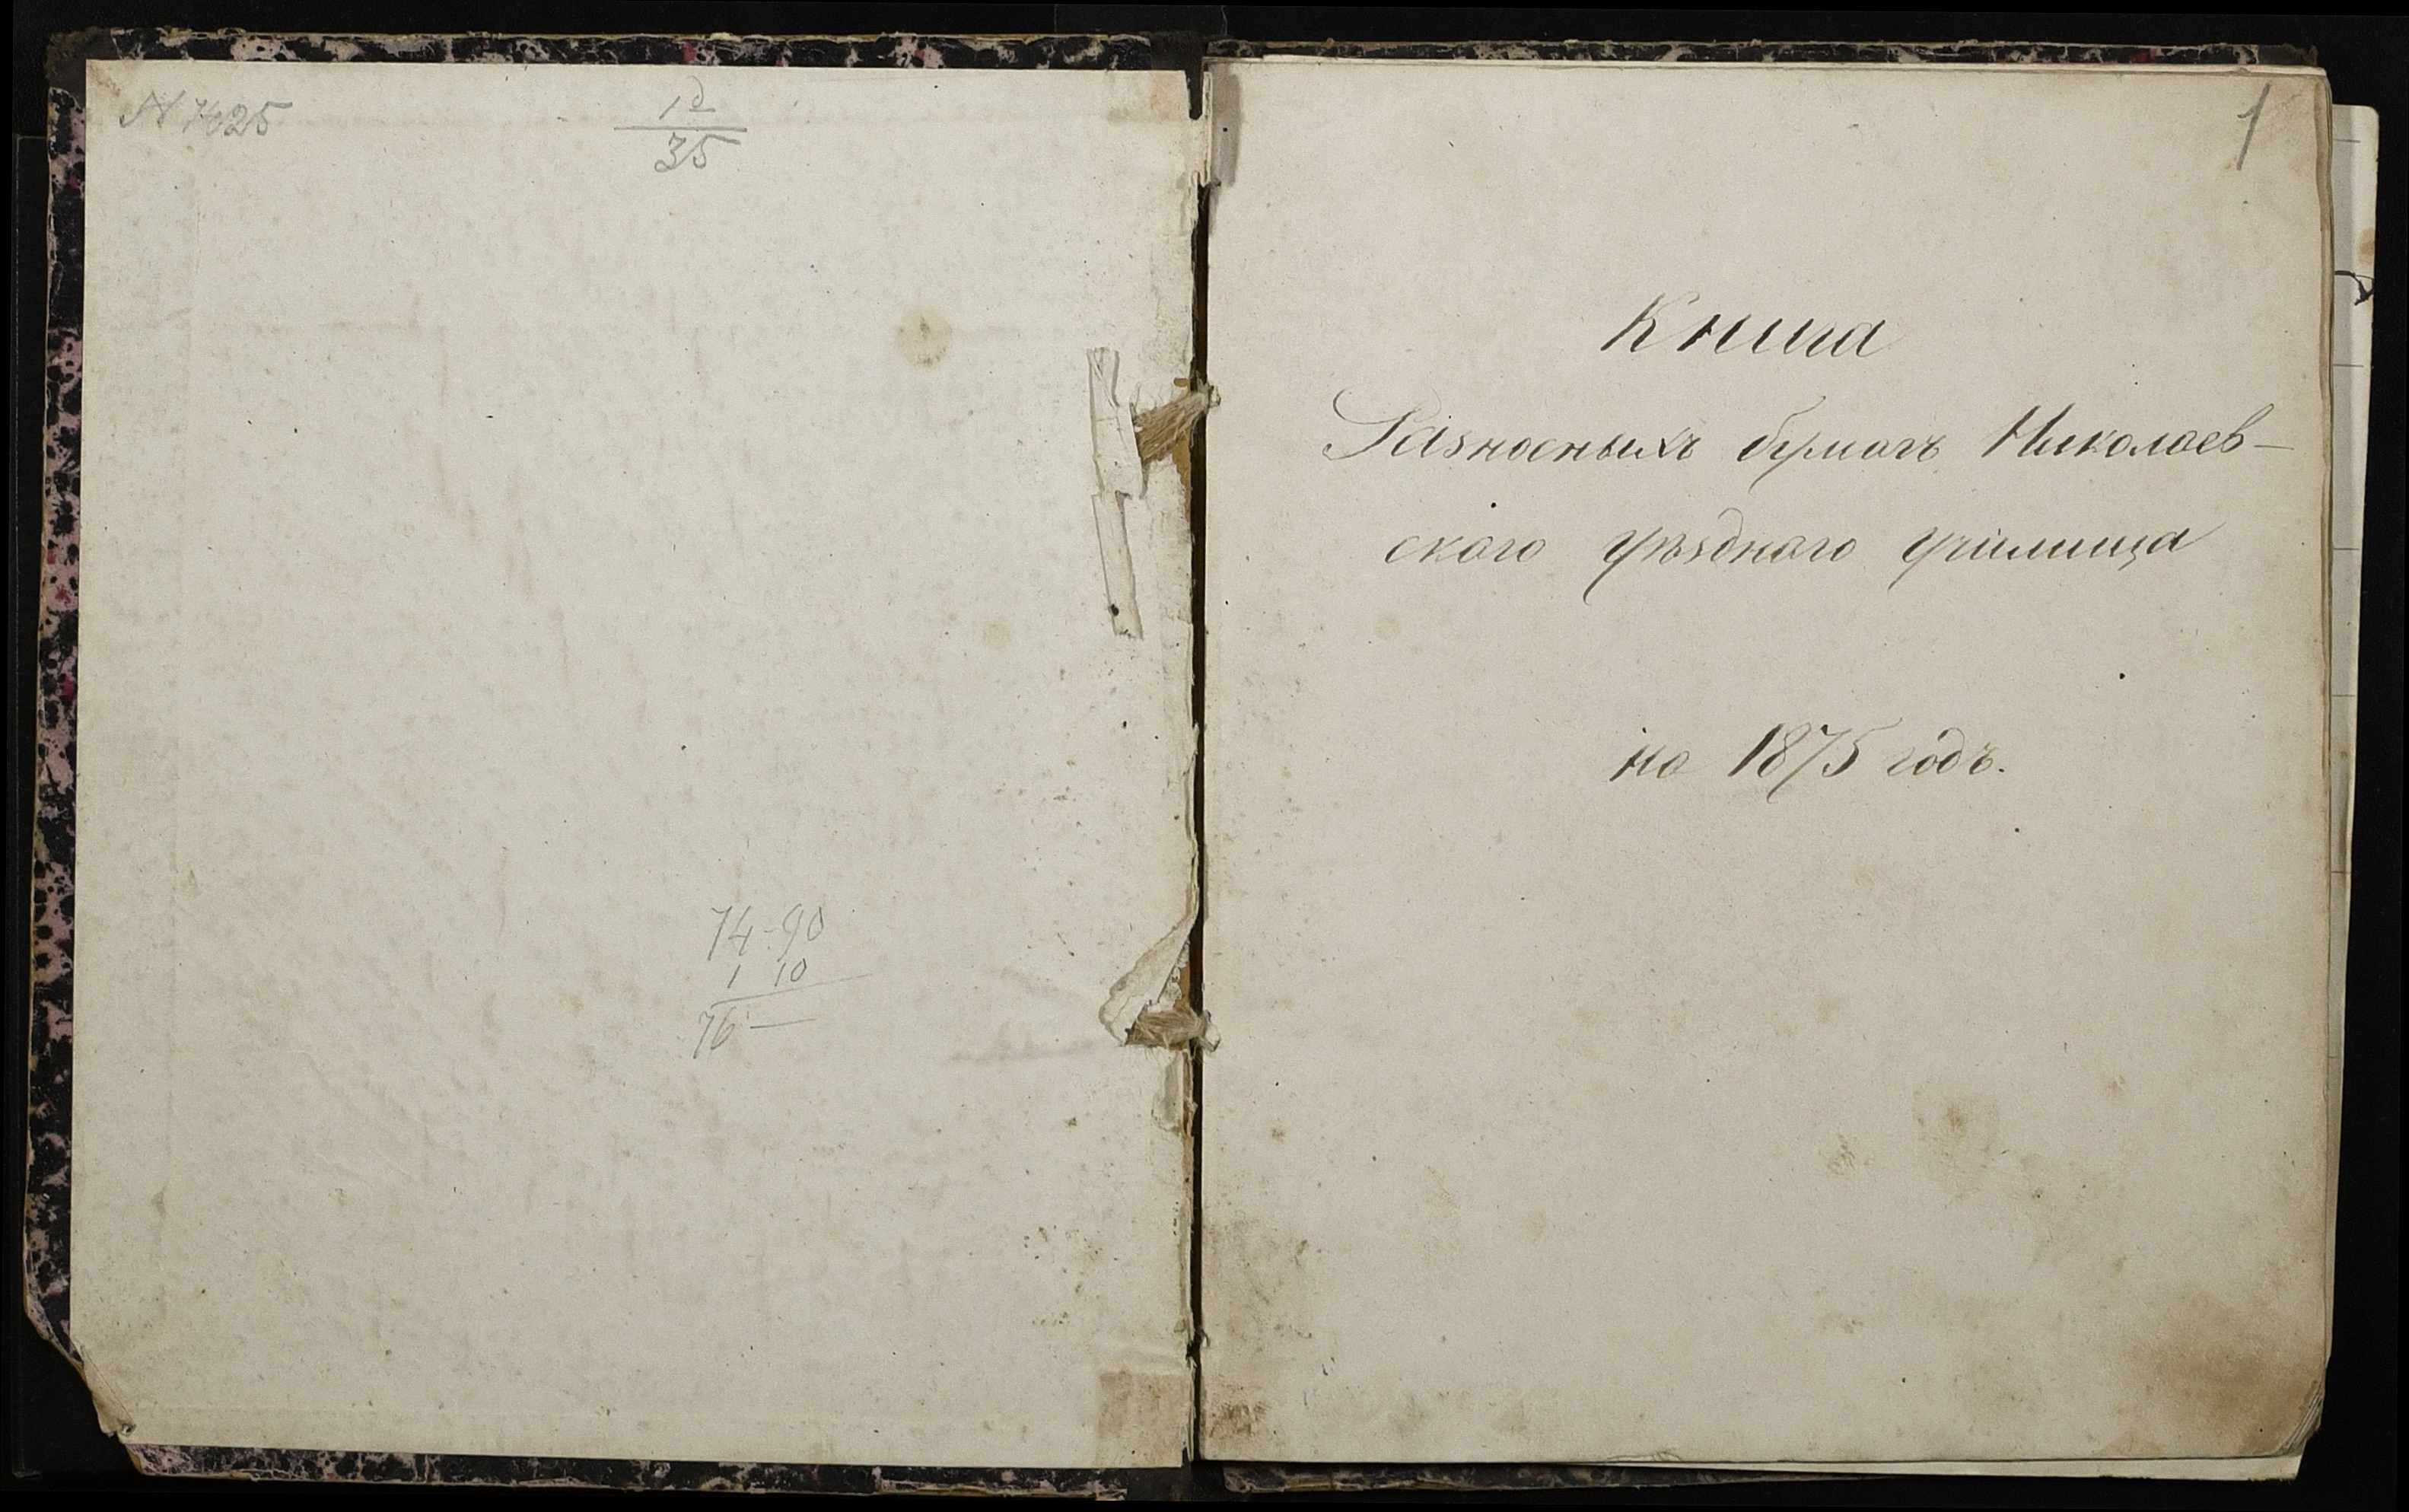 1
35
74-90
1 10
76 —
1
Книга
Разносныхъ бумагъ Николаев-
скаго уѣзднаго училища
на 1875 годъ.